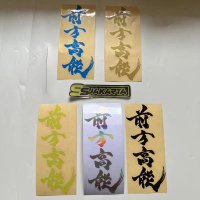 前方高能
前方高能
SSJAKARTA
前方高能
前方高能
前方高能